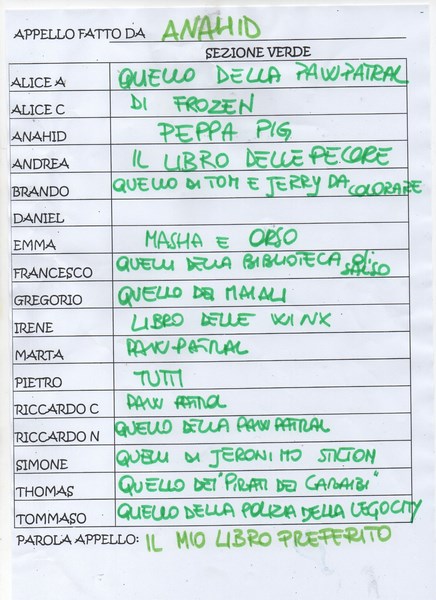 APPELLO FATTO DA ANAHID
SEZIONE VERDE
ALICE A QUELLO DELLA PAW-PATRAL
ALICE C DI FROZEN
ANAHID PEPPA PIG
ANDREA IL LIBRO DELLE PECORE
BRANDO QUELLO DI TOM E JERRY DA COLORARE
DANIEL
EMMA MASHA E ORSO
FRANCESCO QUELLI DELLA BIBLIOTECA di SALSO
GREGORIO QUELLO DEI MAIALI
IRENE LIBRO DELLE WINX
MARTA PAW-PATRAL
PIETRO TUTTI
RICCARDO C PAW PATROL
RICCARDO N QUELLO DELLA PAW PATRAL
SIMONE QUELLI DI JERONIMO STILTON
THOMAS QUELLO DEI "PIRATI DEI CARAIBI"
TOMMASO QUELLO DELLA POLIZIA DELLA LEGOCITY
PAROLA APPELLO: IL MIO LIBRO PREFERITO